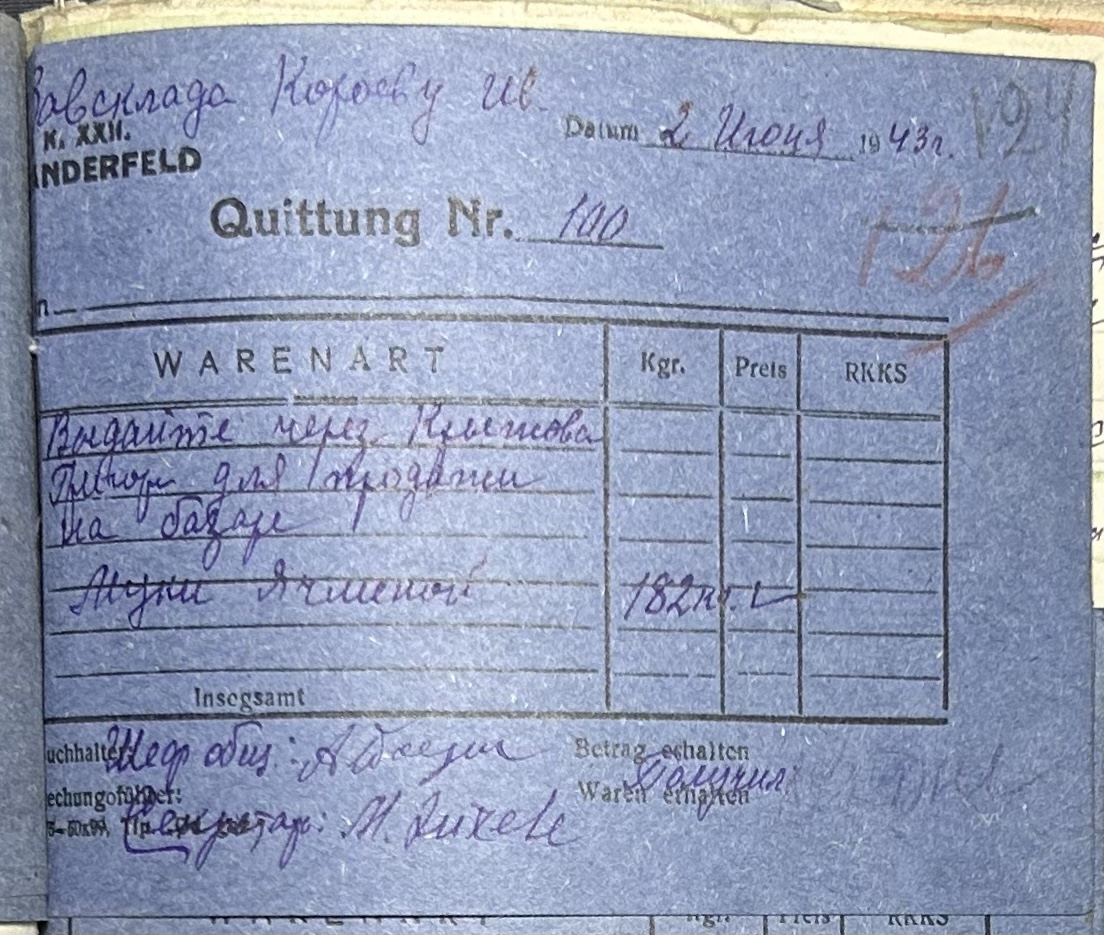 Завсклада Короеву Ив.
K. XXII.
NDERFELD
Datum 2 Июня 1943г.
124
Quittung Nr. 100
126
WARENART Kgr. Preis RKKS
Выдайте через Крыжова
Григор для продажи
на базаре
Муки Ячменой 182 кг.
Insegsamt
uchhalter: Шеф общ:
Betrag erhalten
echungsführer:
Waren erhalten
Получил
Секретар: М.